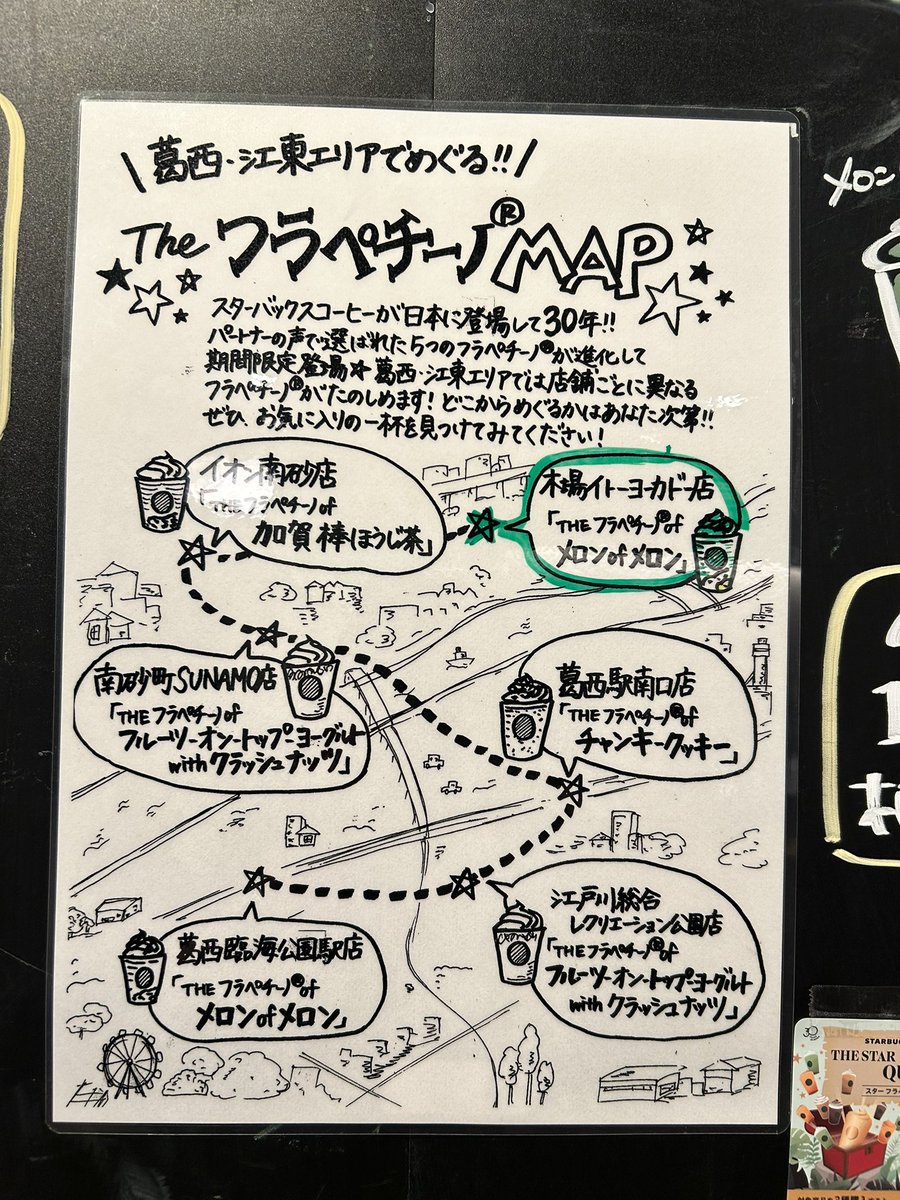 葛西・江東エリアでめぐる!!
The フラペチーノ® MAP
スターバックスコーヒーが日本に登場して30年!!
パートナーの声で選ばれた5つのフラペチーノ®が進化して
期間限定登場★葛西・江東エリアでは店舗ごとに異なる
フラペチーノ®がたのしめます!どこからめぐるかはあなた次第!!
ぜひ、お気に入りの一杯を見つけてみてください!
イオン南砂店
「THE フラペチーノ of
加賀棒ほうじ茶」
木場イトーヨーカドー店
「THE フラペチーノ® of
メロン of メロン」
南砂町SUNAMO店
「THE フラペチーノ of
フルーツ-オン-トップ-ヨーグルト
with クラッシュナッツ」
葛西駅南口店
「THE フラペチーノ® of
チャンキークッキー」
江戸川総合
レクリエーション公園店
「THE フラペチーノ® of
フルーツ-オン-トップ-ヨーグルト
with クラッシュナッツ」
葛西臨海公園駅店
「THE フラペチーノ® of
メロン of メロン」
メロン
STARBUC
THE STAR
QU
スターフラ